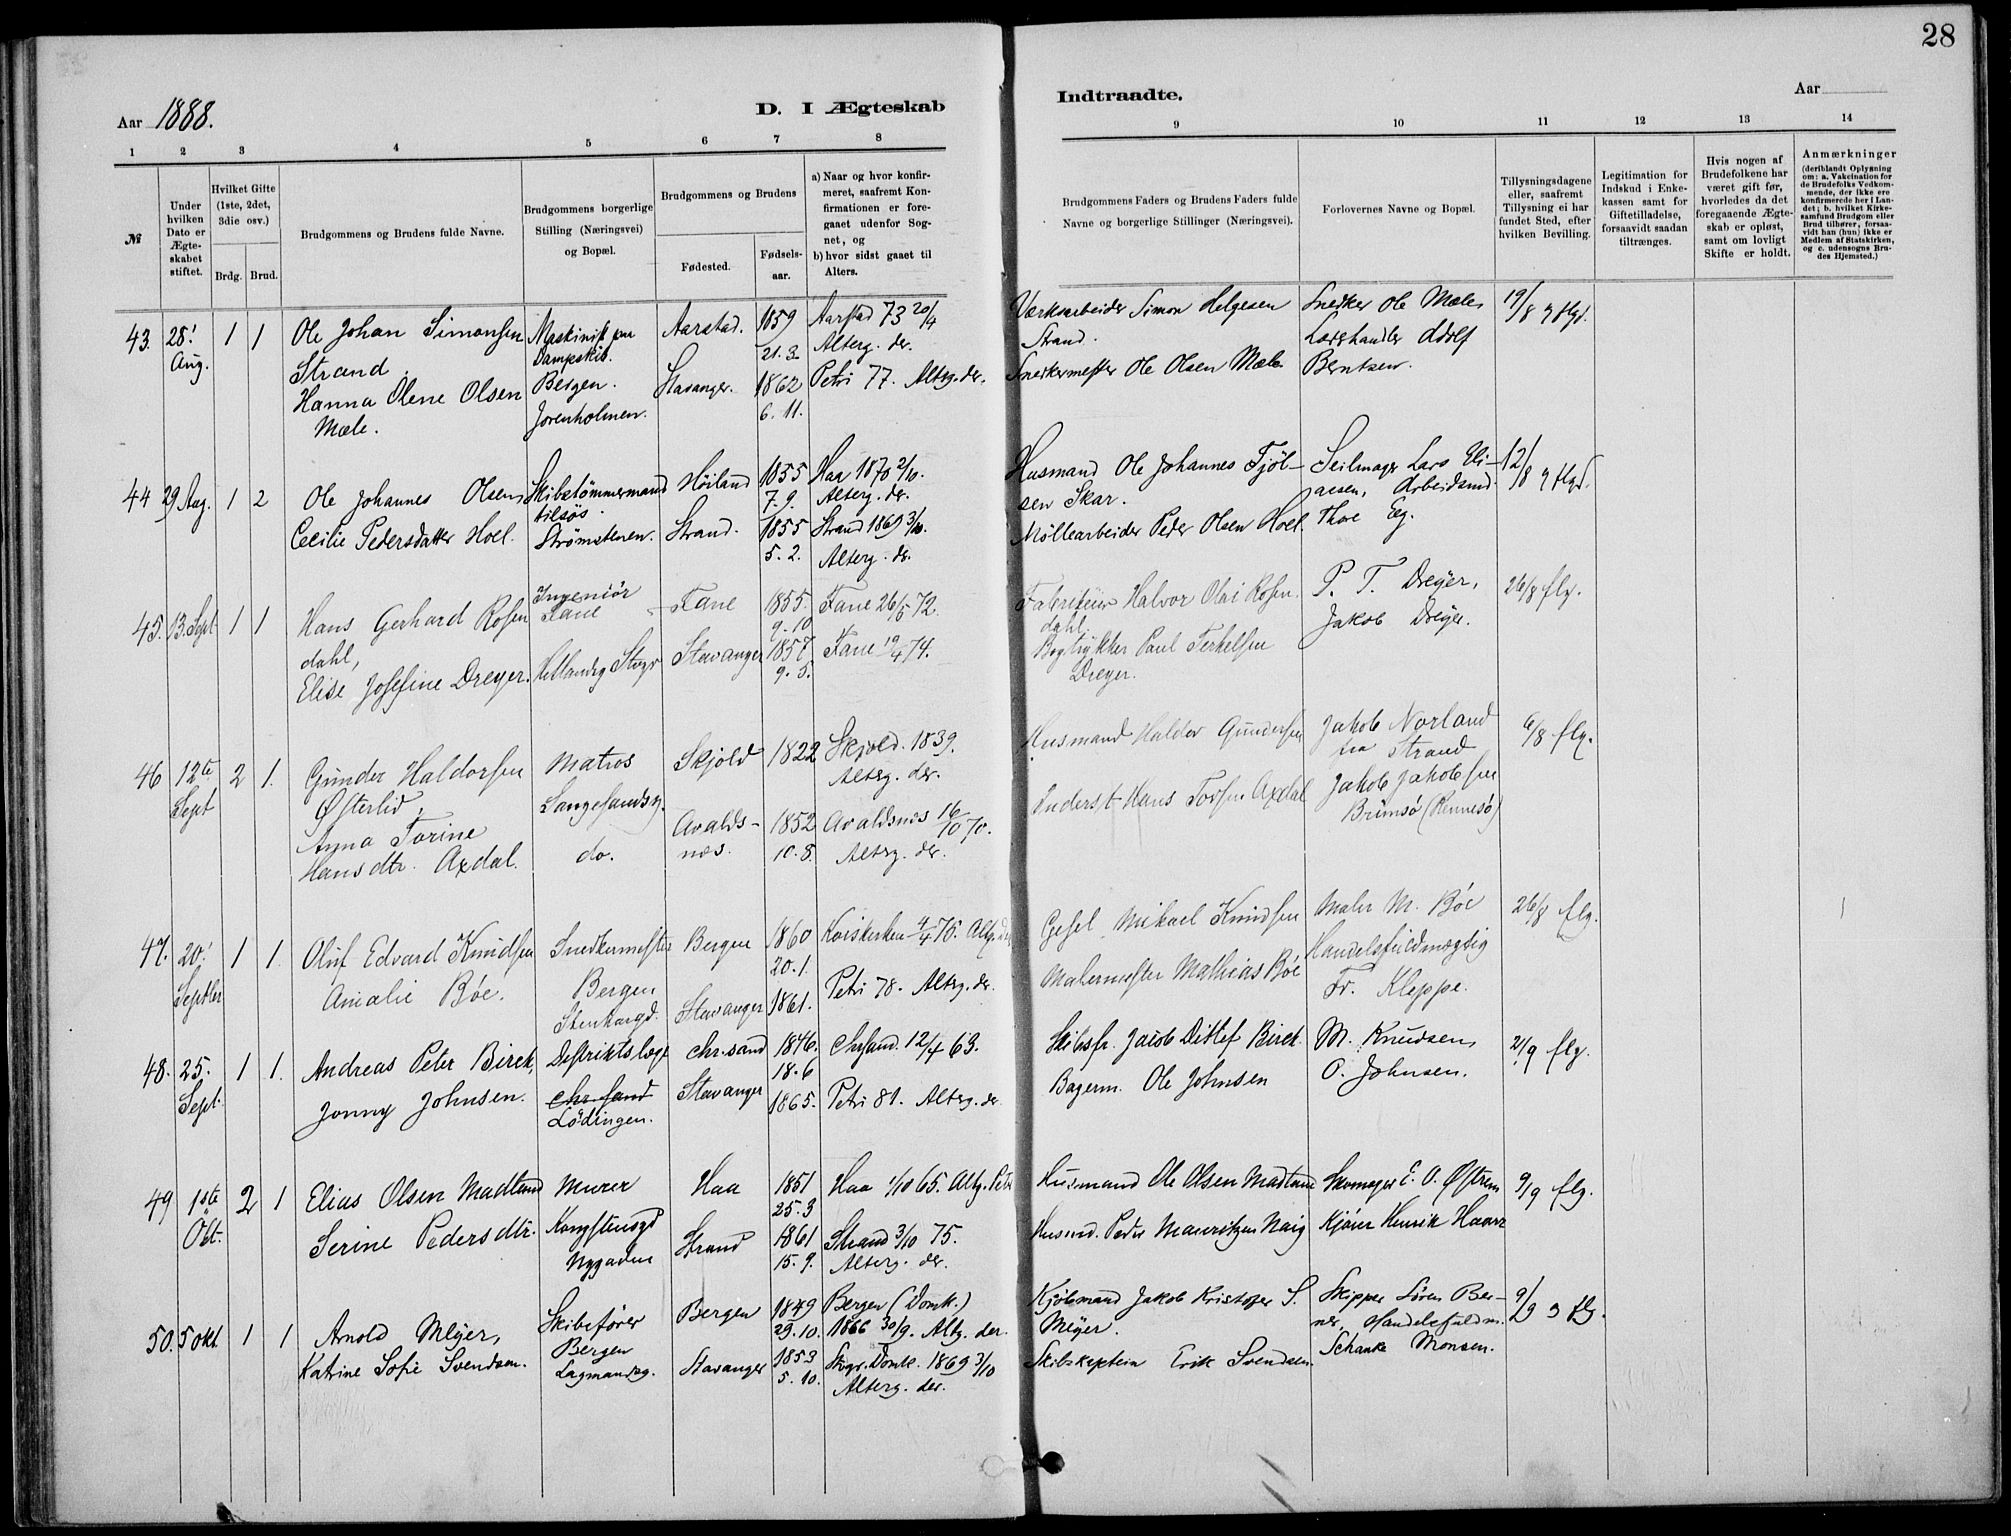 28
Aar 1888.
D. I Ægteskab
Indtraadte.
Aar
1 2 3 4 5 6 7 8
9 10 11 12 13 14
№
Under hvilken Dato er Ægteskabet stiftet.
Hvilket Gifte (1ste, 2det, 3die osv.)
Brdg. Brud.
Brudgommens og Brudens fulde Navne.
Brudgommens borgerlige Stilling (Næringsvei) og Bopæl.
Brudgommens og Brudens
Fødested.
Fødselsaar.
a) Naar og hvor konfirmeret, saafremt Konfirmationen er foregaaet udenfor Sognet, og
b) hvor sidst gaaet til Alters.
Brudgommens Faders og Brudens Faders fulde Navne og borgerlige Stillinger (Næringsvei).
Forlovernes Navne og Bopæl.
Tillysningsdagene eller, saafremt Tillysning ei har fundet Sted, efter hvilken Bevilling.
Legitimation for Indskud i Enkekassen samt for Giftetilladelse, forsaavidt saadan tiltrænges.
Hvis nogen af Brudefolkene har været gift før, hvorledes da det foregaaende Ægteskab er opløst, samt om lovligt Skifte er holdt.
Anmærkninger
(deriblandt Oplysning om: a. Vakcination for de Brudefolks Vedkommende, der ikke ere konfirmerede her i Landet; b. hvilket Kirkesamfund Brudgom eller Brud tilhører, forsaavidt han (hun) ikke er Medlem af Statskirken, og c. udensogns Brudes Hjemsted.)
43. 28! Aug. 1 1
Ole Johan Simonsen
Strand.
Hanna Olene Olsen
Mæle.
Maskinist paa
Dampskib.
Bergen.
Jorenholmen.
Aarstad.
Stavanger.
1859
21. 3.
1862
6. 11.
Aarstad 73 20/4
Alterg. der.
Petri 77. Alterg. der.
Værksarbeider Simon Helgesen
Strand.
Snedkermester Ole Olsen Mæle
Snedker Ole Mæle
Læshandler Adolf
Berntsen.
19/8 flgd.
44 29 Aug. 1 2
Ole Johannes Olsen
Cecilie Pedersdatter Hoel.
Skibstømmermand
tilsøs.
Strømstenen.
Höiland
Strand.
1855
7. 9.
1855
5. 2.
Haa 1870 2/10.
Alterg. der.
Strand 1869 3/10.
Alterg. der.
Husmand Ole Johannes Tjöl-
sen Skar.
Möllearbeider Peder Olsen Hoel
Seilmager Lars Eli-
aesen, Arbeidsmd.
Thore Eeg.
12/8 flgd.
45. 13. Sept. 1 1
Hans Gerhard Rosen
dahl,
Elise Josefine Dreyer.
Ingeniör
Fane
Hetlandsg Stvgr
Fane
Stavanger
1855.
9. 10
1857
9. 5.
Fane 26/5 72.
Fane 19/4 74.
Fabrikeier Halvor Olai Rosen
dahl.
Bogtrykker Paul Terkelsen
Dreyer.
P. T. Dreyer,
Jakob Dreyer.
26/8 flg.
46 12te Sept 2 1.
Gunder Haldorsen
Østerlid,
Anna Torine
Hansdtr. Axdal.
Matros
Langesandsg.
do.
Skjold
Avalds-
næs.
1822
1852
10. 8.
Skjold. 1839.
Alterg. der.
Avaldsnæs 16/10 70.
Alterg. der.
Husmand Haldor Gundersen
Inderst Hans Torsen Axdal
Jakob Norland
fra Strand
Jakob Jakobsen
Brimsö (Rennesö)
6/8 flg.
47. 20! Septbr 1 1.
Oluf Edvard Knudsen
Amalie Böe.
Snedkermester
Bergen
Stenhargd.
Bergen
Stavanger
1860
20. 1.
1861.
Korskirken 4/4 75. Altg. der
Petri 78. Alterg. der.
Gesel Mikael Knudsen
Malermester Mathias Böe
Maler M. Böe
Handelsfuldmægtig
Fr. Kleppe.
26/8 flg.
48. 25. Sept. 1 1.
Andreas Peter Birch,
Jonny Johnsen.
Distriktslæge
Chr.sand
Lödingen.
Chr.sand
Stavanger
1846.
18. 6
1865.
Chrsand. 12/4 63.
Petri 81. Alterg. der
Skibsf. Jacob Ditlef Birch.
Bagerm. Ole Johnsen
M. Knudsen,
O. Johnsen.
2/9 flg.
49 1ste Okt. 2 1
Elias Olsen Madland
Serine Pedersdtr.
Murer
Kongstensgd
Nygaden
Haa
Strand
1851
25. 3
1861
15. 9.
Haa 1/10 65. Altg. Petri
Strand 3/10 75.
Alterg. der.
Husmand Ole Olsen Madland
Husmd. Peder Mauritzen Naig
Skomager E. O. Østrem
Kjører Henrik Haarr
9/9 flg.
50. 5 Okt. 1 1
Arnold Meyer,
Katrine Sofie Svendsen.
Skibsfører
Bergen
Lagmandsg.
Bergen
Stavanger
1849
29. 10.
1853
5. 10.
Bergen (Domk.)
1866 30/9. Altg. der.
Stvgr. Domk. 1869 3/10
Alterg. der.
Kjöbmand Jakob Kristofer S.
Meyer.
Skibskaptein Erik Svendsen.
Skipper Sören Ber-
ner, Handelsfuldm.
Schanke Monsen.
9/9 flg.